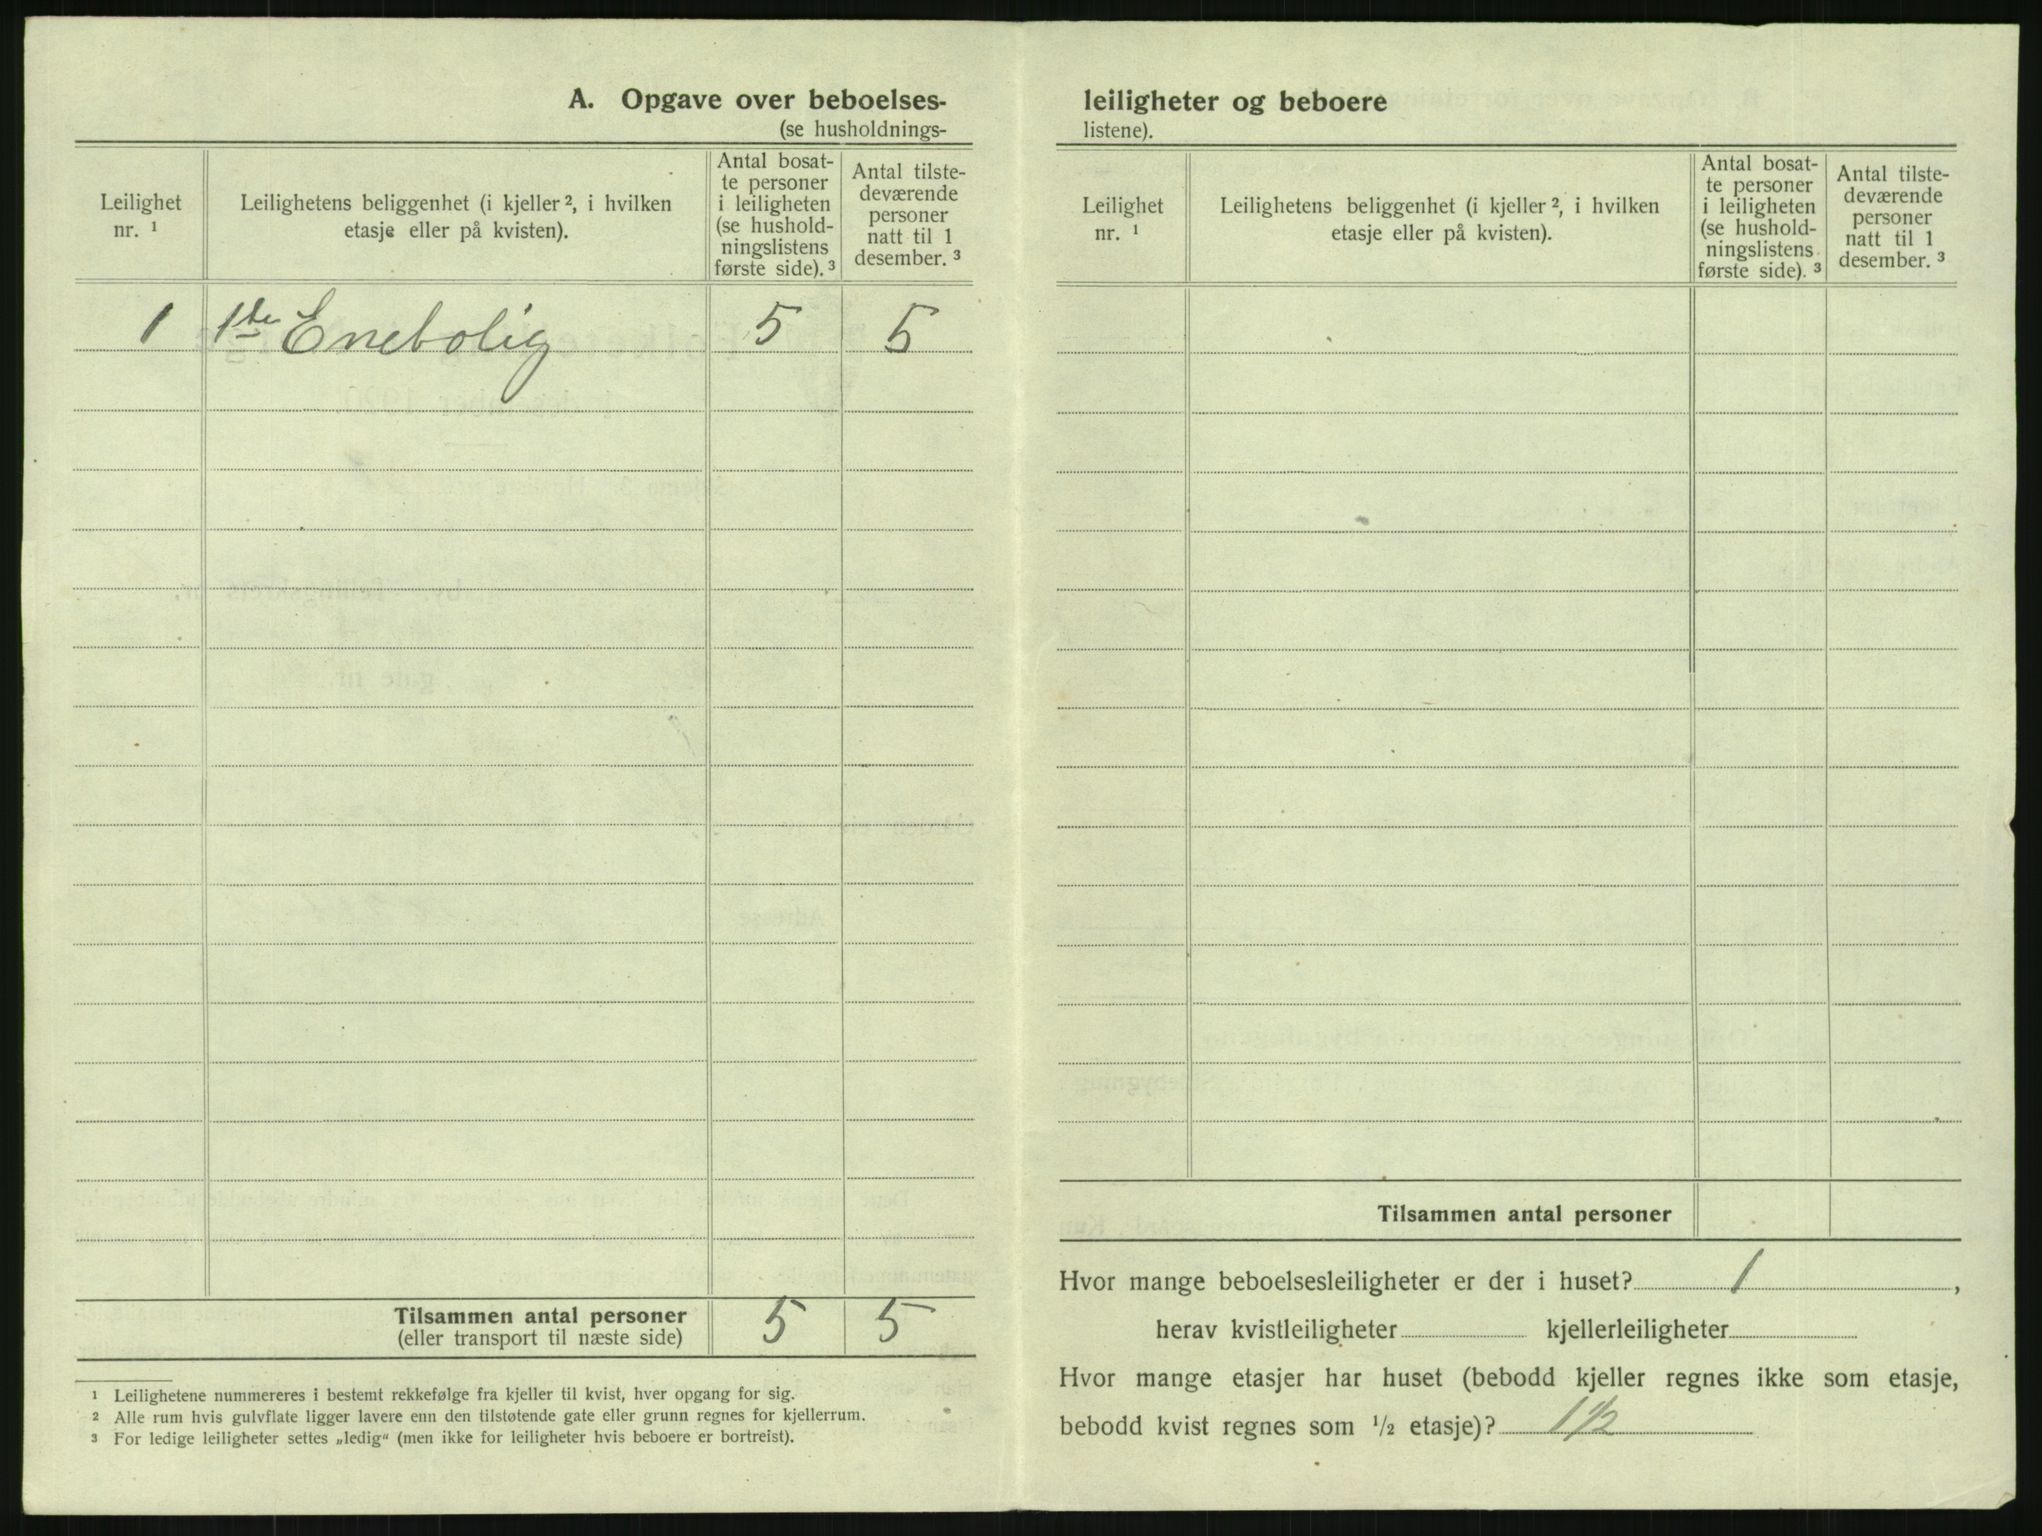 A. Opgave over beboelses-
(se husholdnings-
Leilighet
nr. ¹
Leilighetens beliggenhet (i kjeller ², i hvilken
etasje eller på kvisten).
Antal bosat-
te personer
i leiligheten
(se hushold-
ningslistens
første side). ³
Antal tilste-
deværende
personer
natt til 1
desember. ³
1 1ste Enebolig 5 5
Tilsammen antal personer 5 5
(eller transport til næste side)
¹ Leilighetene nummereres i bestemt rekkefølge fra kjeller til kvist, hver opgang for sig.
² Alle rum hvis gulvflate ligger lavere enn den tilstøtende gate eller grunn regnes for kjellerrum.
³ For ledige leiligheter settes „ledig“ (men ikke for leiligheter hvis beboere er bortreist).
leiligheter og beboere
listene).
Leilighet
nr. ¹
Leilighetens beliggenhet (i kjeller ², i hvilken
etasje eller på kvisten).
Antal bosat-
te personer
i leiligheten
(se hushold-
ningslistens
første side). ³
Antal tilste-
deværende
personer
natt til 1
desember. ³
Tilsammen antal personer
Hvor mange beboelsesleiligheter er der i huset? 1,
herav kvistleiligheter kjellerleiligheter
Hvor mange etasjer har huset (bebodd kjeller regnes ikke som etasje,
bebodd kvist regnes som ½ etasje)? 1½